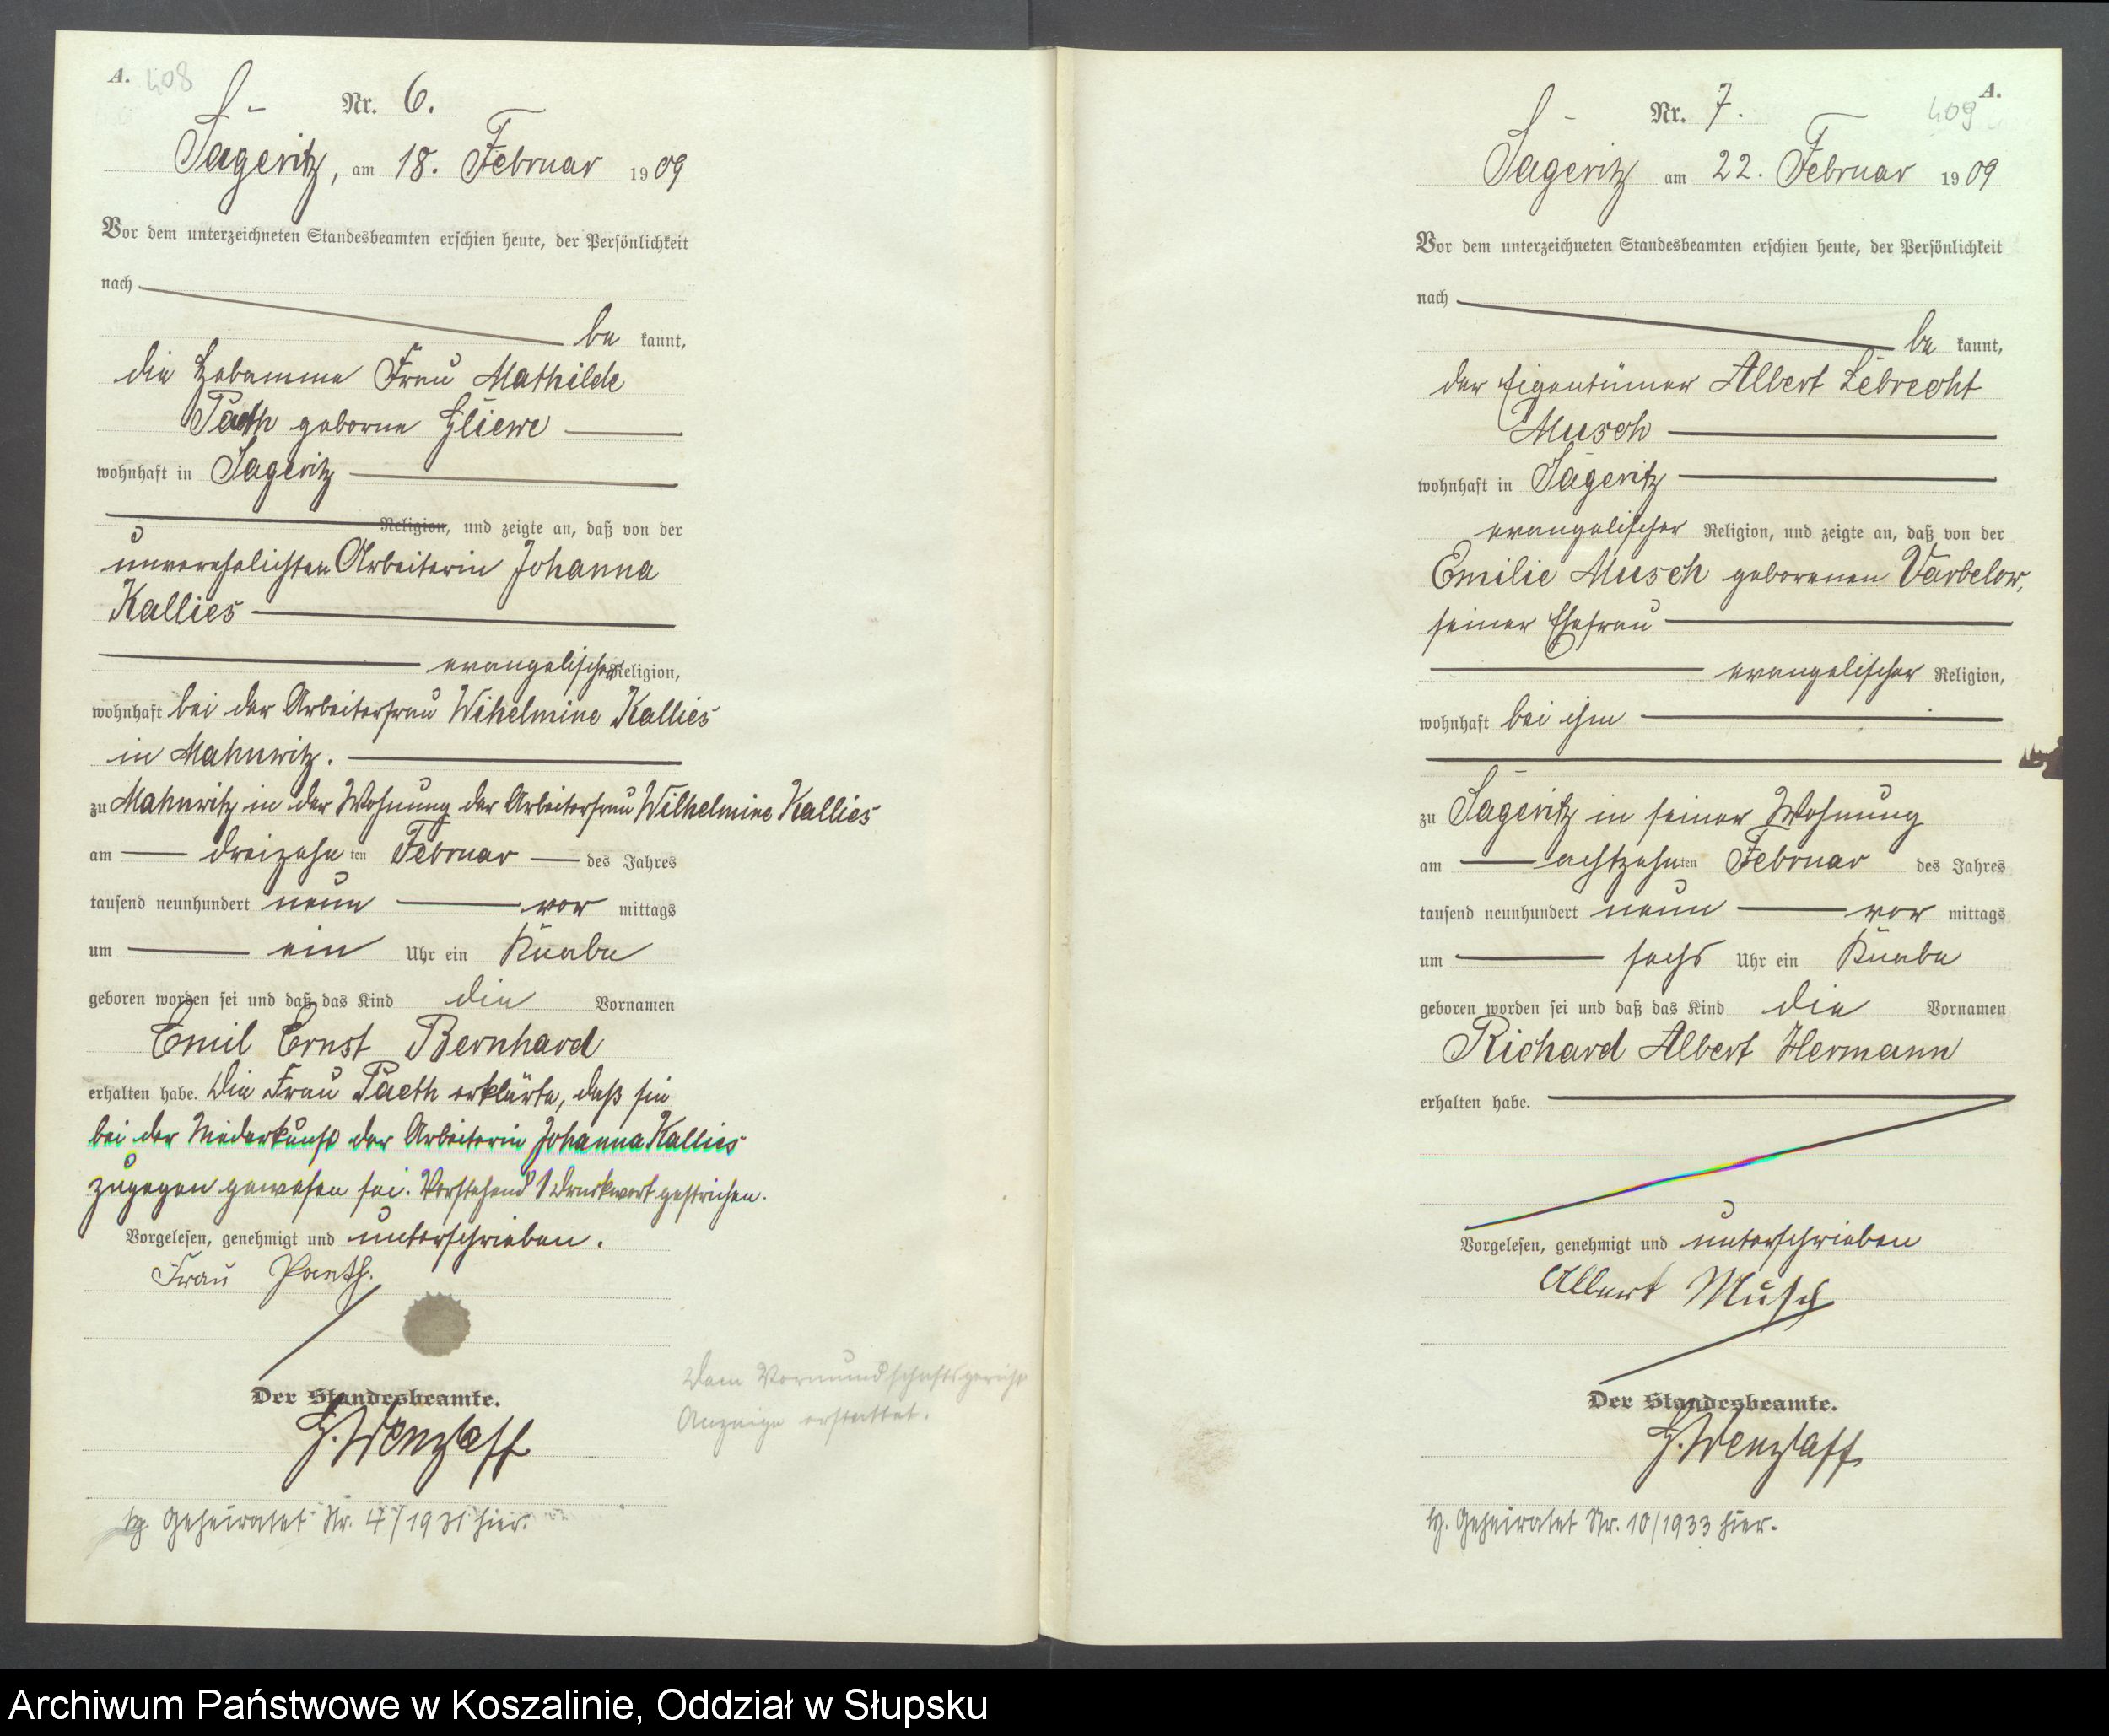 A. 408
Nr. 6.
Sageritz, am 18. Februar 1909
Vor dem unterzeichneten Standesbeamten erschien heute, der Persönlichkeit
nach
be kannt,
die Hebamme Frau Mathilde
Paeth geborne Gliewe
wohnhaft in Sageritz
Religion, und zeigte an, daß von der
unverehelichten Arbeiterin Johanna
Kallies
evangelischer Religion,
wohnhaft bei der Arbeiterfrau Wihelmine Kallies
in Mahnwitz.
zu Mahnwitz in der Wohnung der Arbeiterfrau Wilhelmine Kallies
am dreizehn ten Februar des Jahres
tausend neunhundert neun vor mittags
um ein Uhr ein Knabe
geboren worden sei und daß das Kind die Vornamen
Emil Ernst Bernhard
erhalten habe. Die Frau Paeth erklärte, daß sie
bei der Niederkunft der Arbeiterin Johanna Kallies
zugegen gewesen sei. Vorstehend 1 Druckwort gestrichen.
Vorgelesen, genehmigt und unterschrieben.
Frau Paeth.
Der Standesbeamte.
G. Wenzlaff
Dem Vormundschaftsgericht
Anzeige erstattet.
Geheiratet Nr. 4/1931 hier.
A.
409
Nr. 7.
Sageritz am 22. Februar 1909
Vor dem unterzeichneten Standesbeamten erschien heute, der Persönlichkeit
nach
be kannt,
der Eigentümer Albert Lebrecht
Musch
wohnhaft in Sageritz
evangelischer Religion, und zeigte an, daß von der
Emilie Musch geborenen Varbelow,
seiner Ehefrau
evangelischer Religion,
wohnhaft bei ihm
zu Sageritz in seiner Wohnung
am achtzehn ten Februar des Jahres
tausend neunhundert neun vor mittags
um sechs Uhr ein Knabe
geboren worden sei und daß das Kind die Vornamen
Richard Albert Hermann
erhalten habe.
Vorgelesen, genehmigt und unterschrieben
Albert Musch
Der Standesbeamte.
G. Wenzlaff
Geheiratet Nr. 10/1933 hier.
Archiwum Państwowe w Koszalinie, Oddział w Słupsku